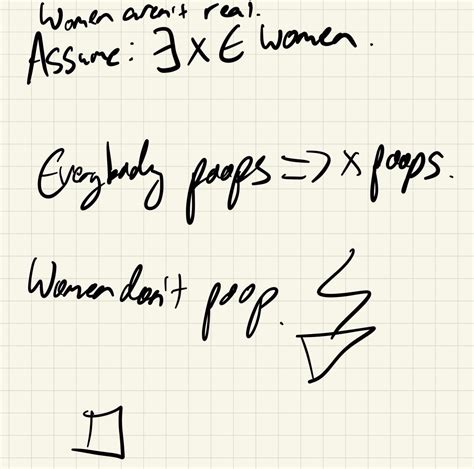 Women aren't real.
Assume: ∃ x ∈ Women.
Everybody poops => x poops.
Women don't poop.